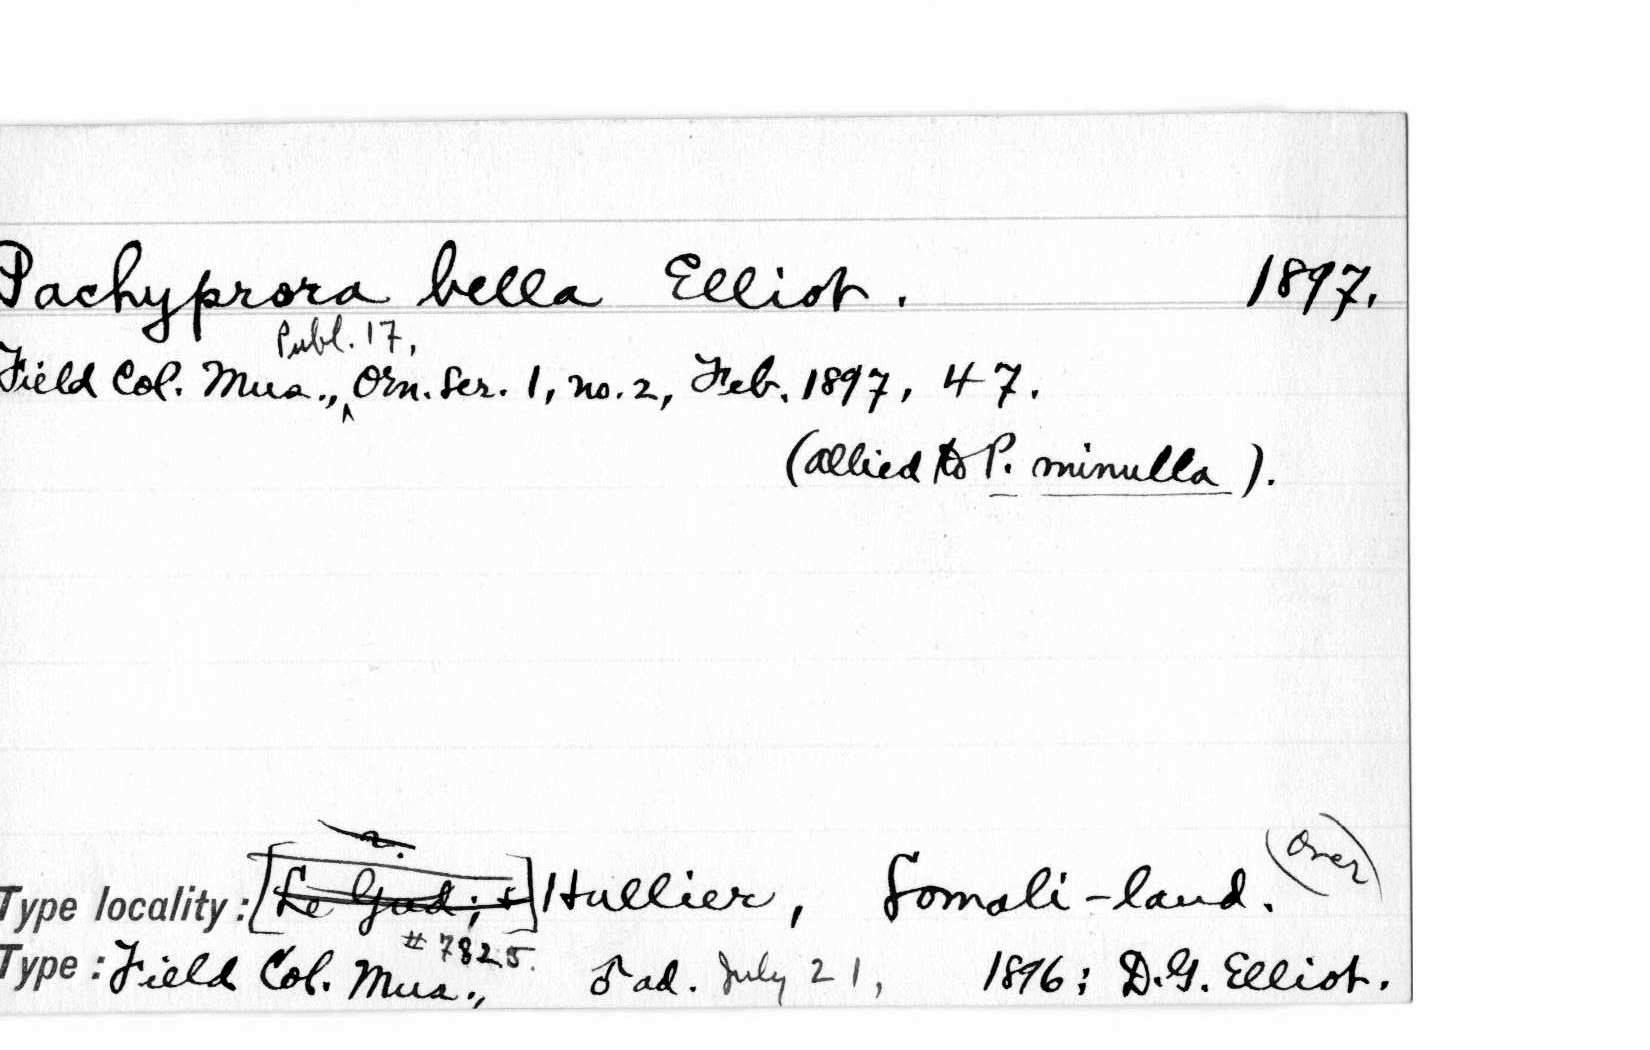 Pachyprora bella Elliot. 1897.
Publ. 17,
Field Col. Mus., Orn. Ser. 1, no. 2, Feb. 1897, 47.
(allied to P. minulla).
(over)
Type locality: [Le Gud; &] Hullier, Somali-land.
#7825.
Type: Field Col. Mus., ♂ ad. July 21, 1896; D.G. Elliot.